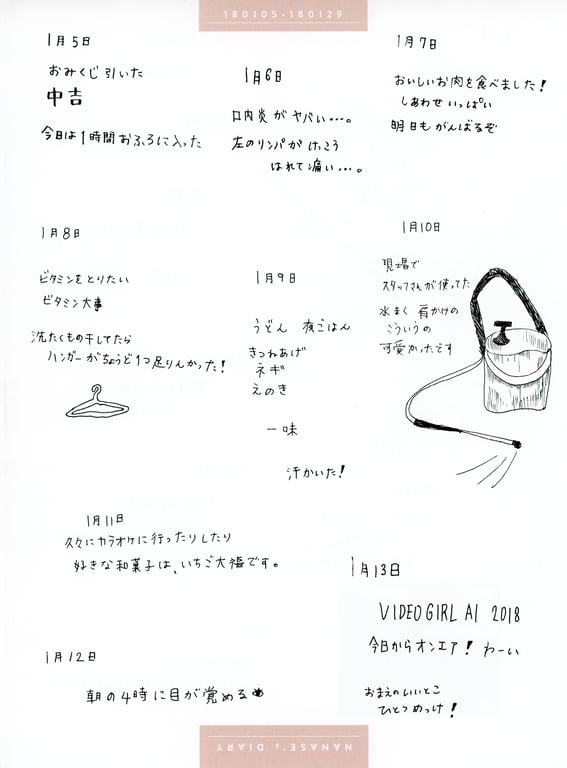 180105-180129
1月5日
おみくじ引いた
中吉
今日は1時間おふろに入った
1月6日
口内炎がヤバい…。
左のリンパがけっこう
はれて痛い…。
1月7日
おいしいお肉を食べました!
しあわせいっぱい
明日もがんばるぞ
1月8日
ビタミンをとりたい
ビタミン大事
洗たくもの干してたら
ハンガーがちょうど1つ足りんかった!
1月9日
うどん 夜ごはん
きつねあげ
ネギ
えのき
一味
汗かいた!
1月10日
現場で
スタッフさんが使ってた
水まく 肩かけの
こういうの
可愛かったです
1月11日
久々にカラオケに行ったりしたり
好きな和菓子は、いちご大福です。
1月12日
朝の4時に目が覚める
1月13日
VIDEO GIRL AI 2018
今日からオンエア! わーい
おまえのいいとこ
ひとつめっけ!
NANASE's DIARY